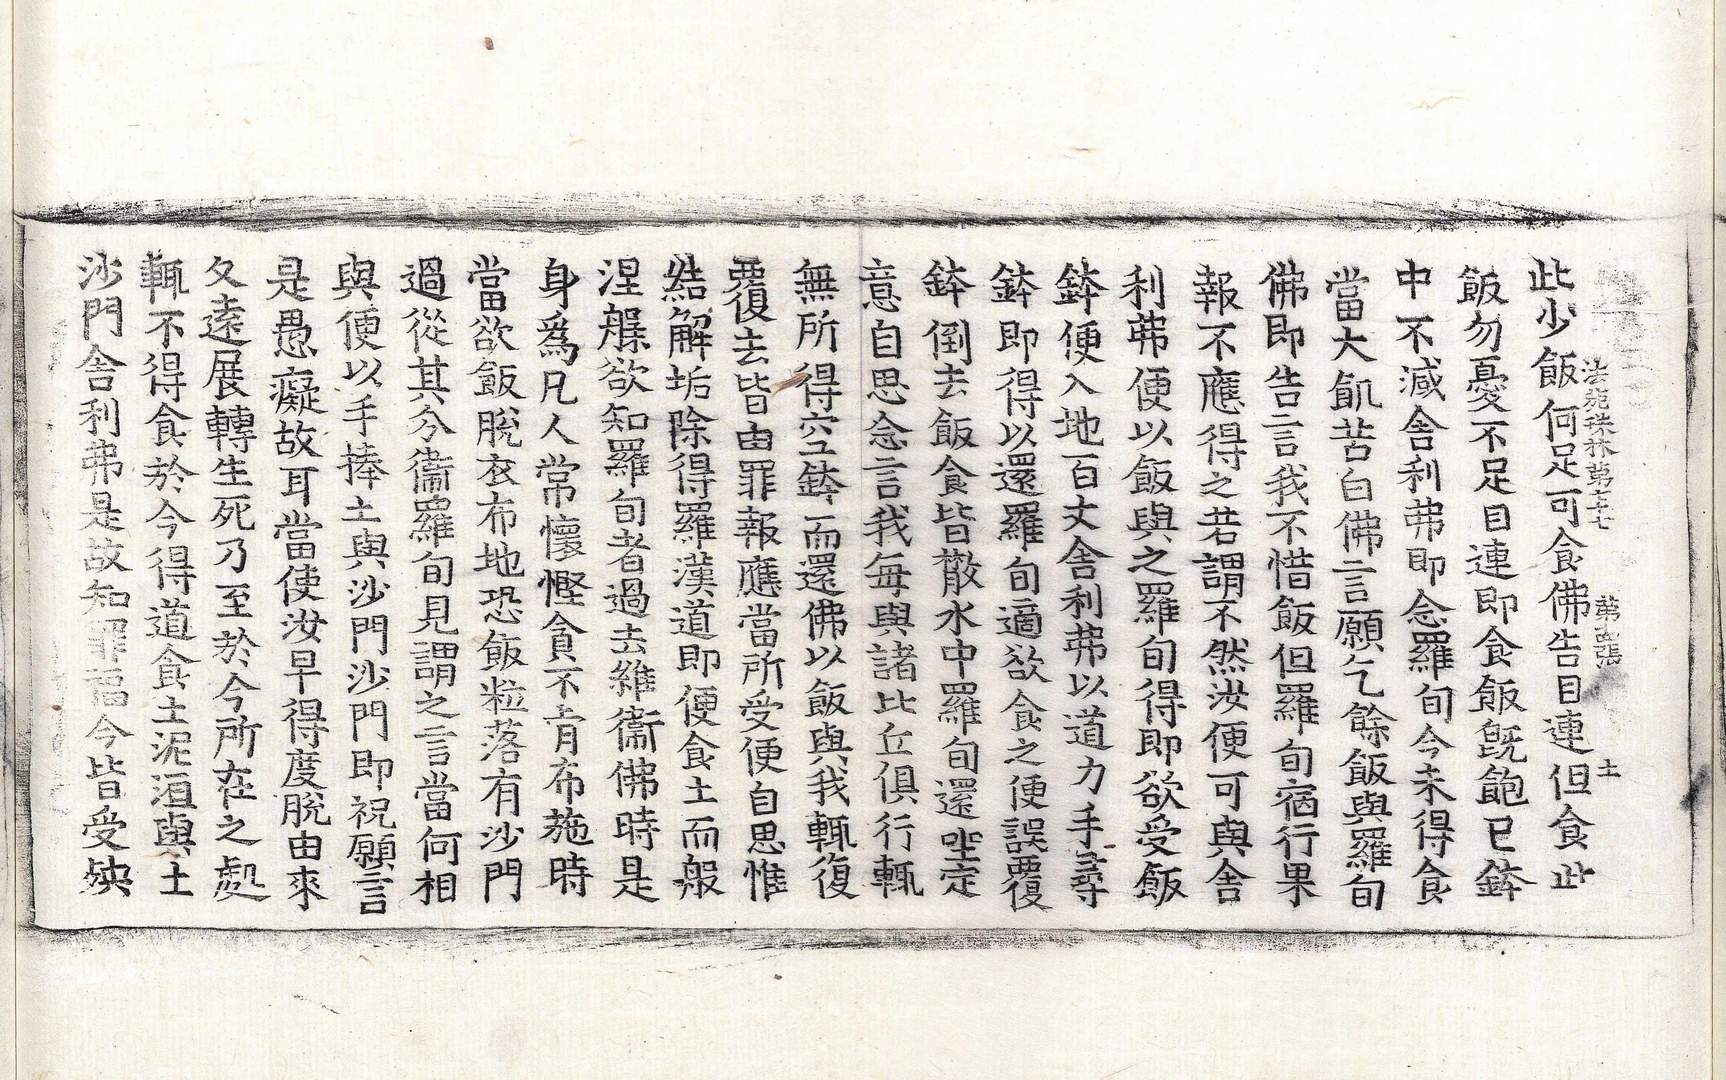 法苑珠林第七十七 第五張 土
此少飯何足可食佛告目連但食此
飯勿憂不足目連即食飯旣飽已鉢
中不減舍利弗即念羅旬今未得食
當大飢苦白佛言願乞餘飯與羅旬
佛即告言我不惜飯但羅旬宿行果
報不應得之若謂不然汝便可與舍
利弗便以飯與之羅旬得即欲受飯
鉢便入地百丈舍利弗以道力手尋
鉢即得以還羅旬適欲食之便誤覆
鉢倒去飯食皆散水中羅旬還坐定
意自思念言我每與諸比丘俱行輒
無所得空鉢而還佛以飯與我輒復
覆去皆由罪報應當所受便自思惟
結解垢除得羅漢道即便食土而般
涅槃欲知羅旬者過去維衞佛時是
身爲凡人常懷慳貪不肯布施時
當欲飯脫衣布地恐飯粒落有沙門
過從其分衞羅旬見謂之言當何相
與便以手捧土與沙門沙門即祝願言
是愚癡故耳當使汝早得度脫由來
久遠展轉生死乃至於今所在之處
輒不得食於今得道食土泥洹與土
沙門舍利弗是故知罪福今皆受殃